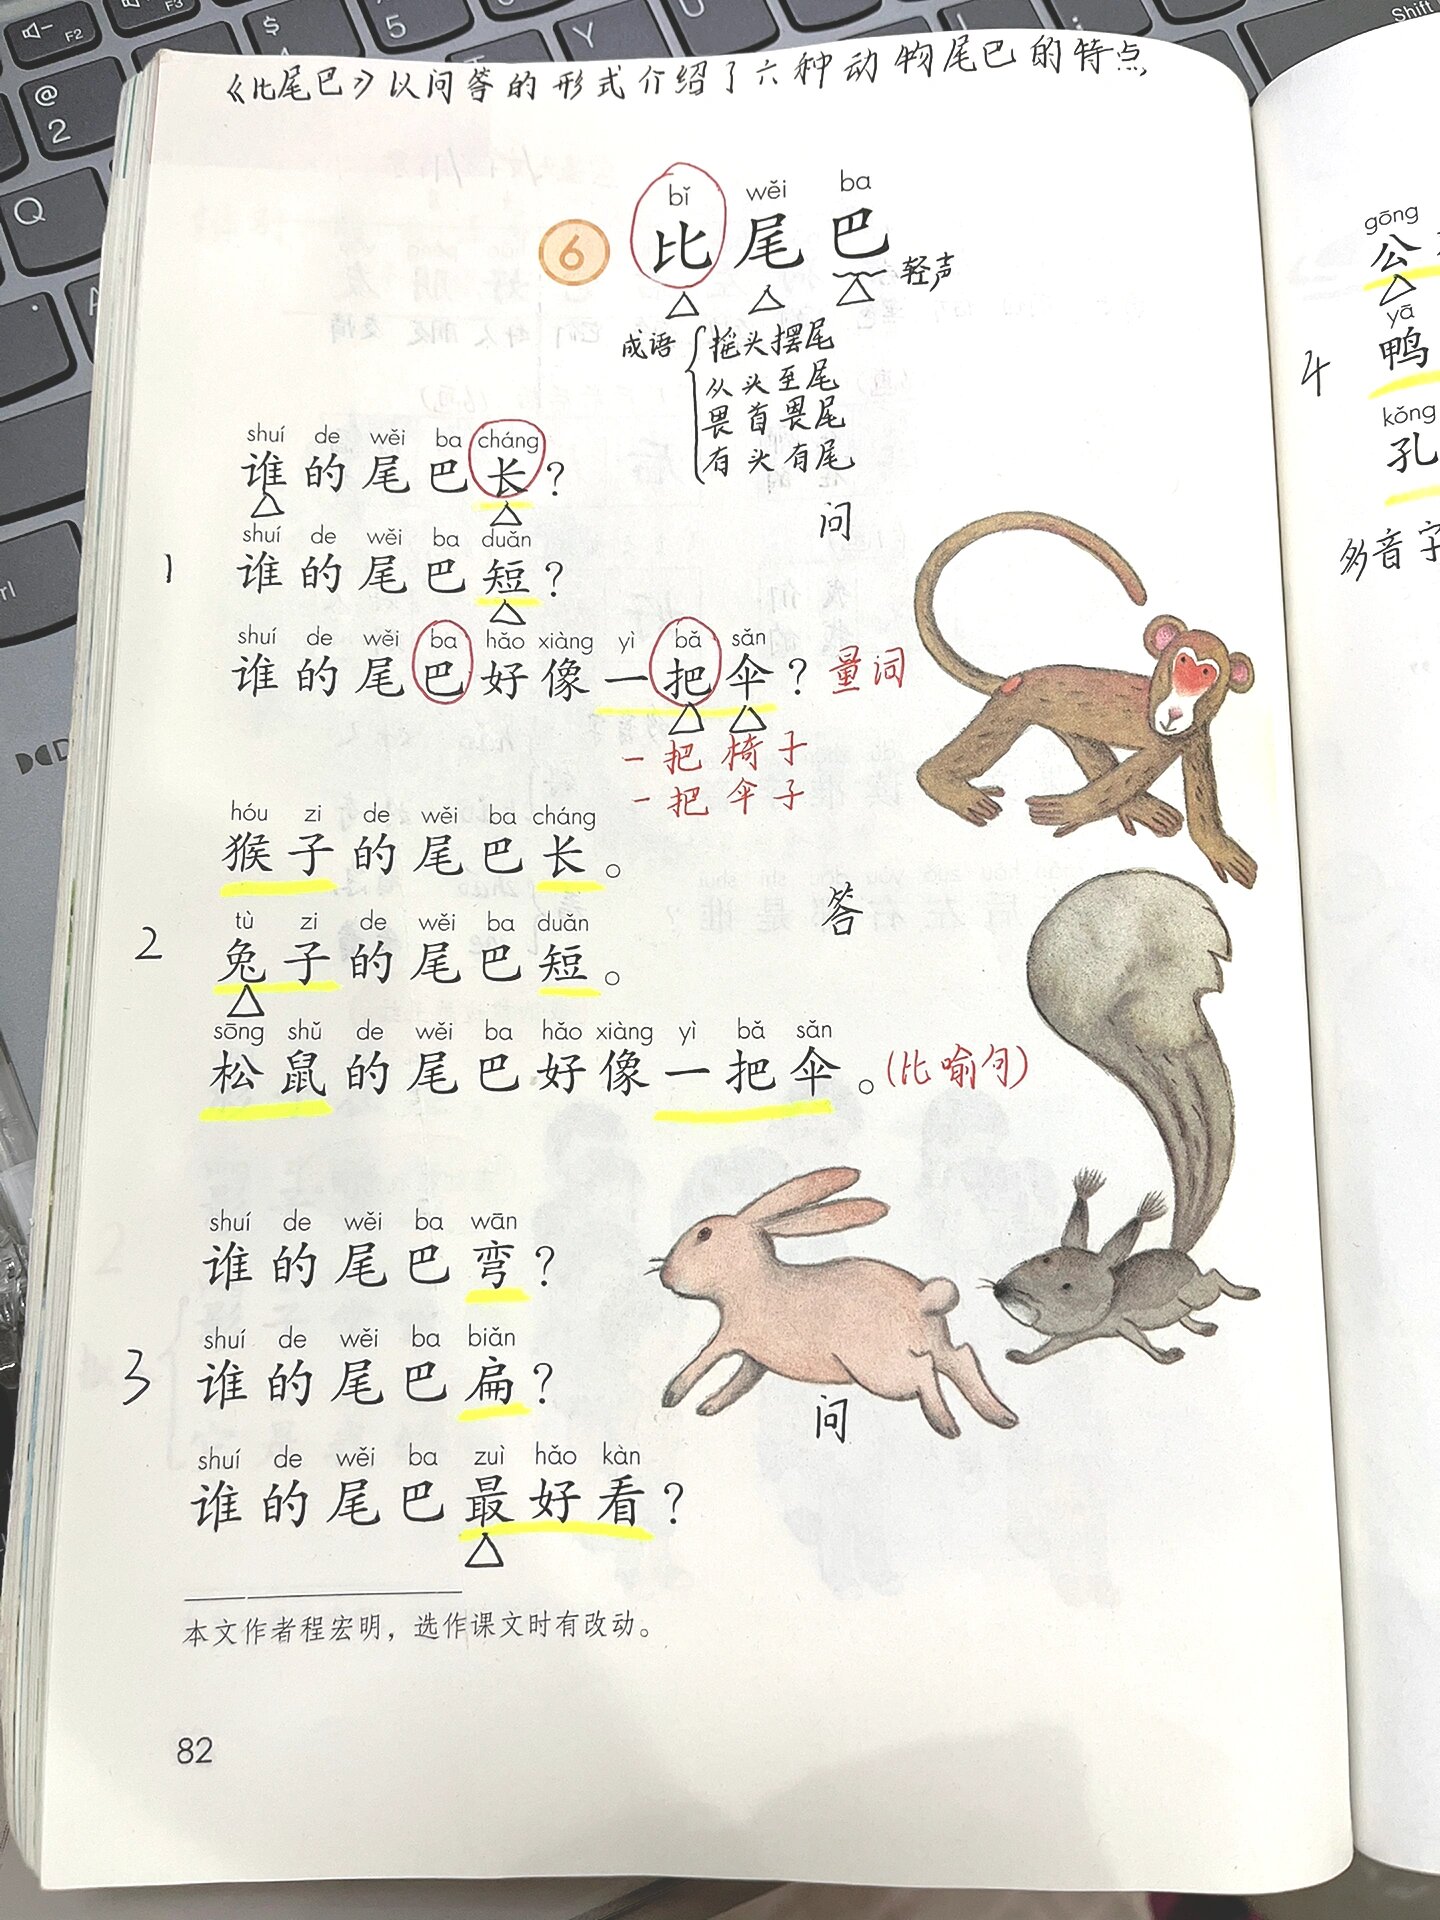 《比尾巴》以问答的形式介绍了六种动物尾巴的特点
bǐ wěi ba
6 比尾巴
轻声
成语
摇头摆尾
从头至尾
畏首畏尾
有头有尾
shuí de wěi ba cháng
谁的尾巴长？
问
shuí de wěi ba duǎn
1 谁的尾巴短？
shuí de wěi ba hǎo xiàng yì bǎ sǎn
谁的尾巴好像一把伞？ 量词
一把椅子
一把伞子
hóu zi de wěi ba cháng
猴子的尾巴长。
答
tù zi de wěi ba duǎn
2 兔子的尾巴短。
sōng shǔ de wěi ba hǎo xiàng yì bǎ sǎn
松鼠的尾巴好像一把伞。(比喻句)
shuí de wěi ba wān
谁的尾巴弯？
shuí de wěi ba biǎn
3 谁的尾巴扁？
问
shuí de wěi ba zuì hǎo kàn
谁的尾巴最好看？
本文作者程宏明，选作课文时有改动。
82
gōng
公
yā
4 鸭
kǒng
孔
多音字
F2
F3
@
2
$
5
Y
Q
A
Shift